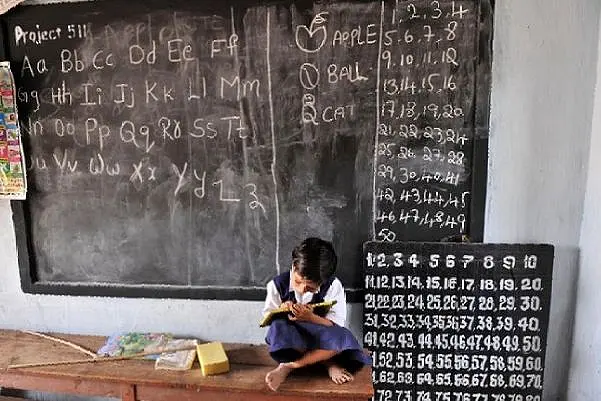 Project 511
Aa Bb Cc Dd Ee Ff
Gg Hh Ii Jj Kk Ll Mm
Nn Oo Pp Qq Rr Ss Tt
Uu Vv Ww Xx Yy Zz
APPLE
BALL
CAT
1, 2, 3, 4
5, 6, 7, 8
9, 10, 11, 12
13, 14, 15, 16
17, 18, 19, 20
21, 22, 23, 24
25, 26, 27, 28
29, 30, 40, 41
42, 43, 44, 45
46, 47, 48, 49
50
1, 2, 3 4 5 6 7 8 9 10
11, 12, 13, 14, 15, 16, 17, 18, 19, 20.
21, 22, 23, 24, 25, 26, 27, 28, 29, 30.
31, 32, 33, 34, 35, 36, 37, 38, 39, 40.
41, 42, 43, 44, 45, 46, 47, 48, 49, 50.
52, 53, 54, 55, 56, 57, 58, 59, 60.
61, 62, 63, 64, 65, 66, 67, 68, 69, 70.
72, 73, 74, 75, 76, 77, 78, 79, 80